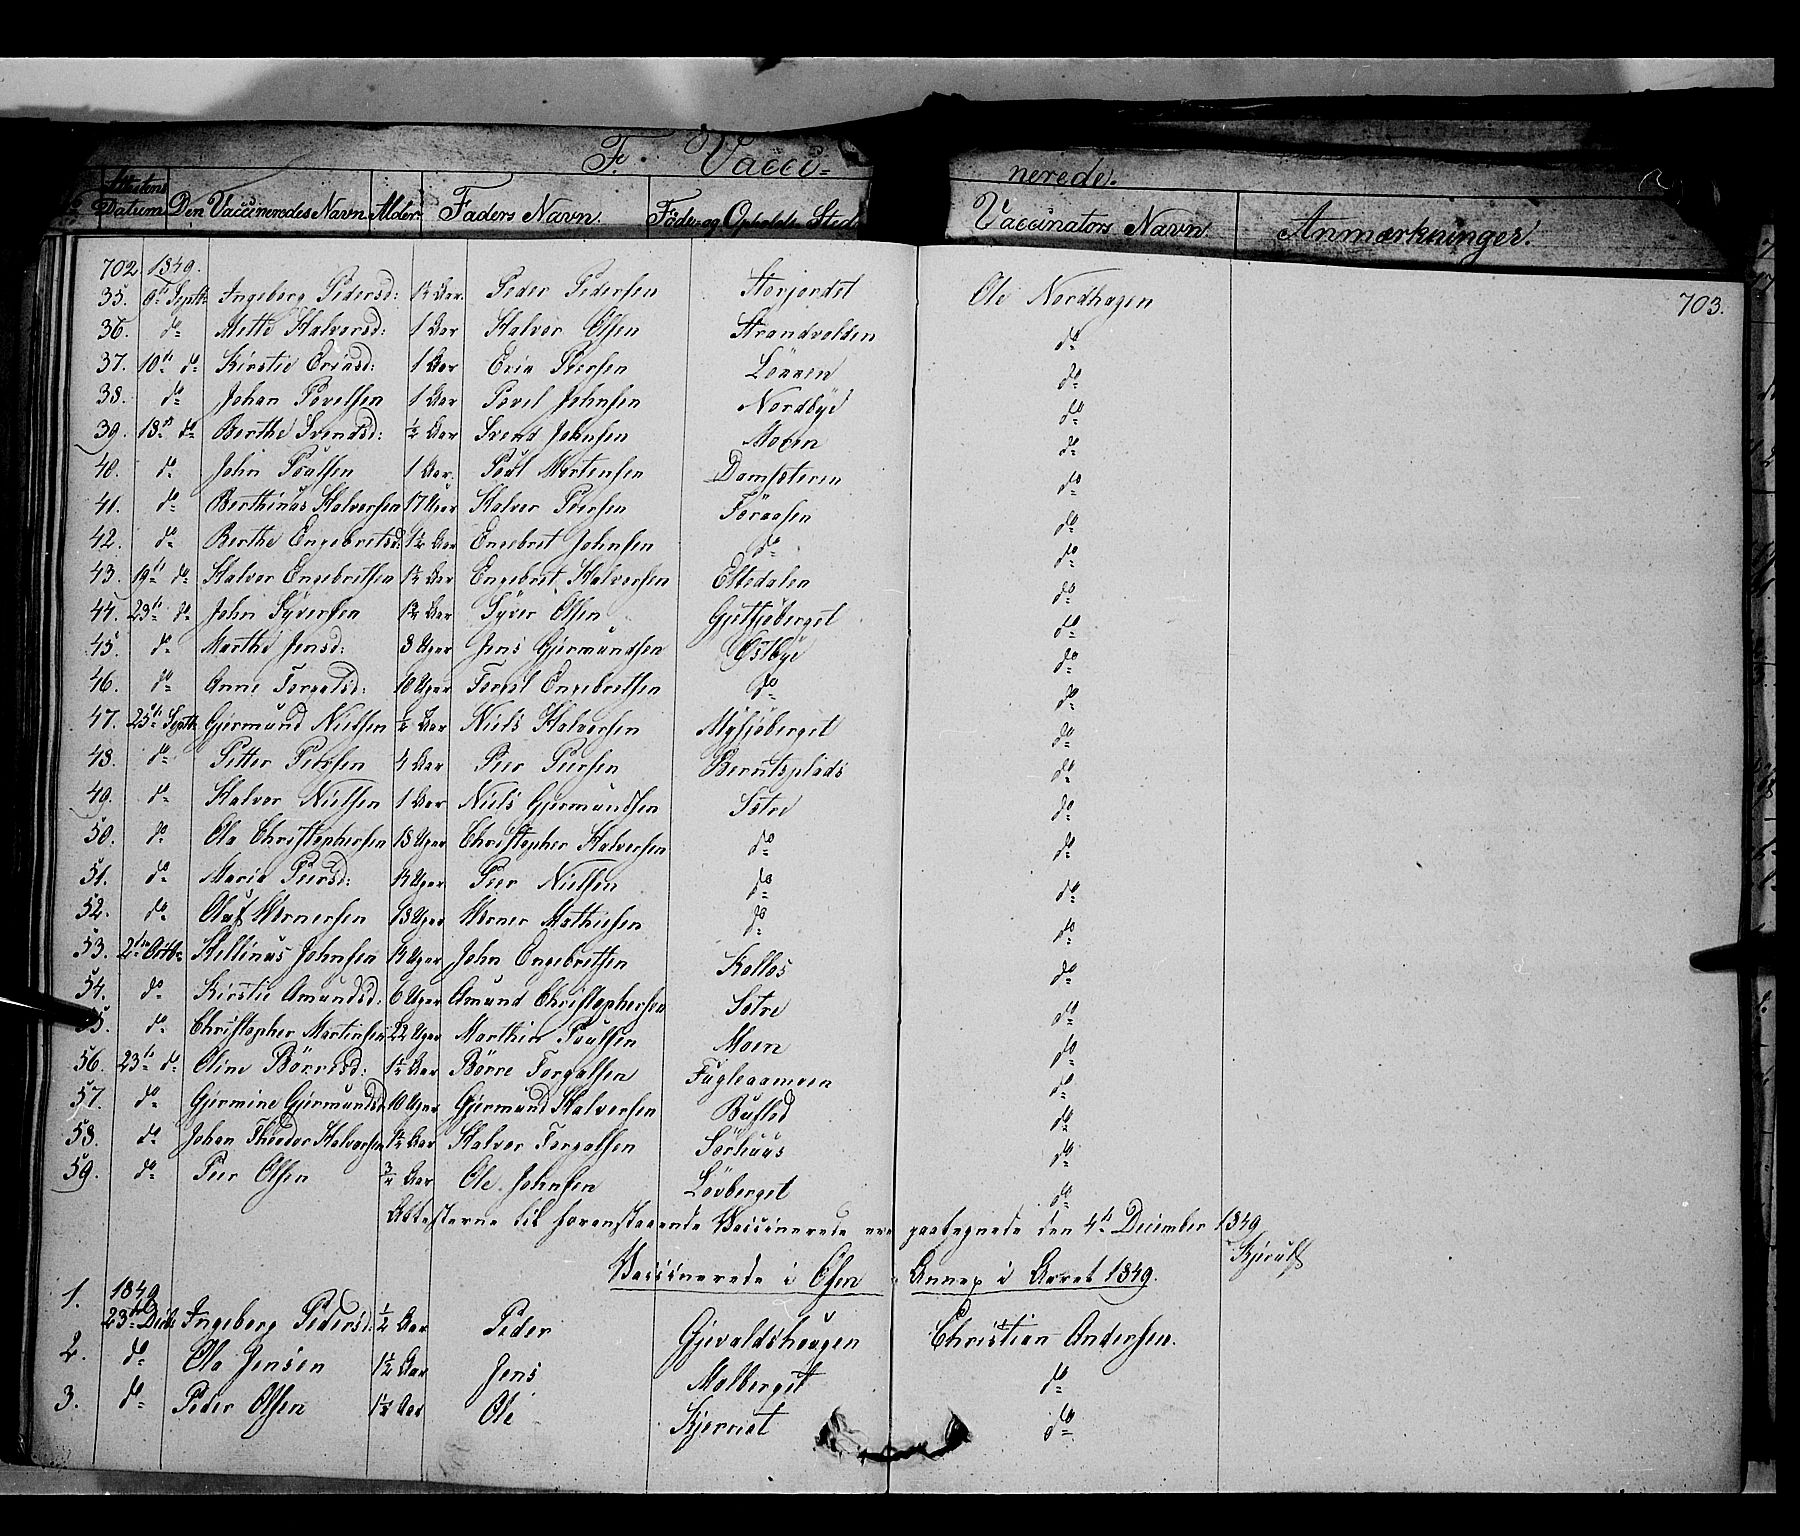 F. Vacci- nerede.
Attestens Datum Den Vaccineredes Navn Alder Faders Navn. Føde- og Opholds Sted Vaccinators Navn. Anmærkninger.
702 1849. 703.
35. 8de Septb Ingeborg Pedersd: 1½ Aar Peder Pedersen Storjordet Ole Nordhagen
36. do Mette Halversd: 1 Aar Halvor Olsen Strandvolden do
37. 10de do Kirstie Ericsd: 1 Aar Eric Persen do
38. do Johan Povelsen 1 Aar Povel Johnsen Nordbye do
39. 18de do Berthe Svendsd: ½ Aar Svend Johnsen Moren do
40. do John Poulsen 1 Aar. Poul Mortensen do
41. do Berthinus Halversen 17 Uger Halvor Persen Føraasen do
42. do Berthe Engebretsd: 1½ Aar Engebret Johnsen do do
43. 19de do Halvor Engebretsen 1½ Aar Engebret Halversen Eltedalen do
44. 23de do John Syversen 1½ Aar Syver Olsen Gjetsjøberget do
45. do Marthe Jensd: 8 Uger Jens Gjermundsen Østbye do
46. do Anne Torgalsd: 10 Uger Torgal Engebretsen do do
47. 25de Septb Gjermund Nielsen ½ Aar Niels Halversen Mysjøberget do
48. do Petter Persen 4 Aar Peer Persen Berntsplads do
49. do Halvor Nielsen 1 Aar Niels Gjermundsen Søtre do
50. do Ole Christophersen 18 Uger Christopher Halversen do do
51. do Marie Peersd: 14 Uger Peer Nielsen do do
52. do Oluf Wernersen 13 Uger Werner Mathiesen do do
53. 2den Octb Johnsen 14 Uger John Engebretsen Kollos do
54. do Kirstie Amundsd: 6 Uger Amund Christophersen Søtre do
55. do Christopher Martinsen 22 Uger Marthin Poulsen Moen do
56. 23de do Oline Børresd: 1½ Aar Børre Torgalsen Fugleaamoen do
57. do Gjermine Gjermundsd 10 Uger Gjermund Halversen do
58. do Johan Theodor Halvorsen 1½ Aar Halvor Torgalsen Sørhuus do
59. do Peer Olsen ¾ Aar Ole Johnsen Løvberget do
Attesterne til foranstaaende Vaccinerede ere paategnede den 4de December 1849
Kjerulf
Vaccinerede i Osen Annex i Aaret 1849.
1849
1. 23de Decb Ingeborg Pedersd: ½ Aar Peder Gjevaldshougen Christian Andersen.
2. do Ole Jensen 1½ Aar Jens Molberget do
3. do Peder Olsen 1½ Aar Ole Kjernet do